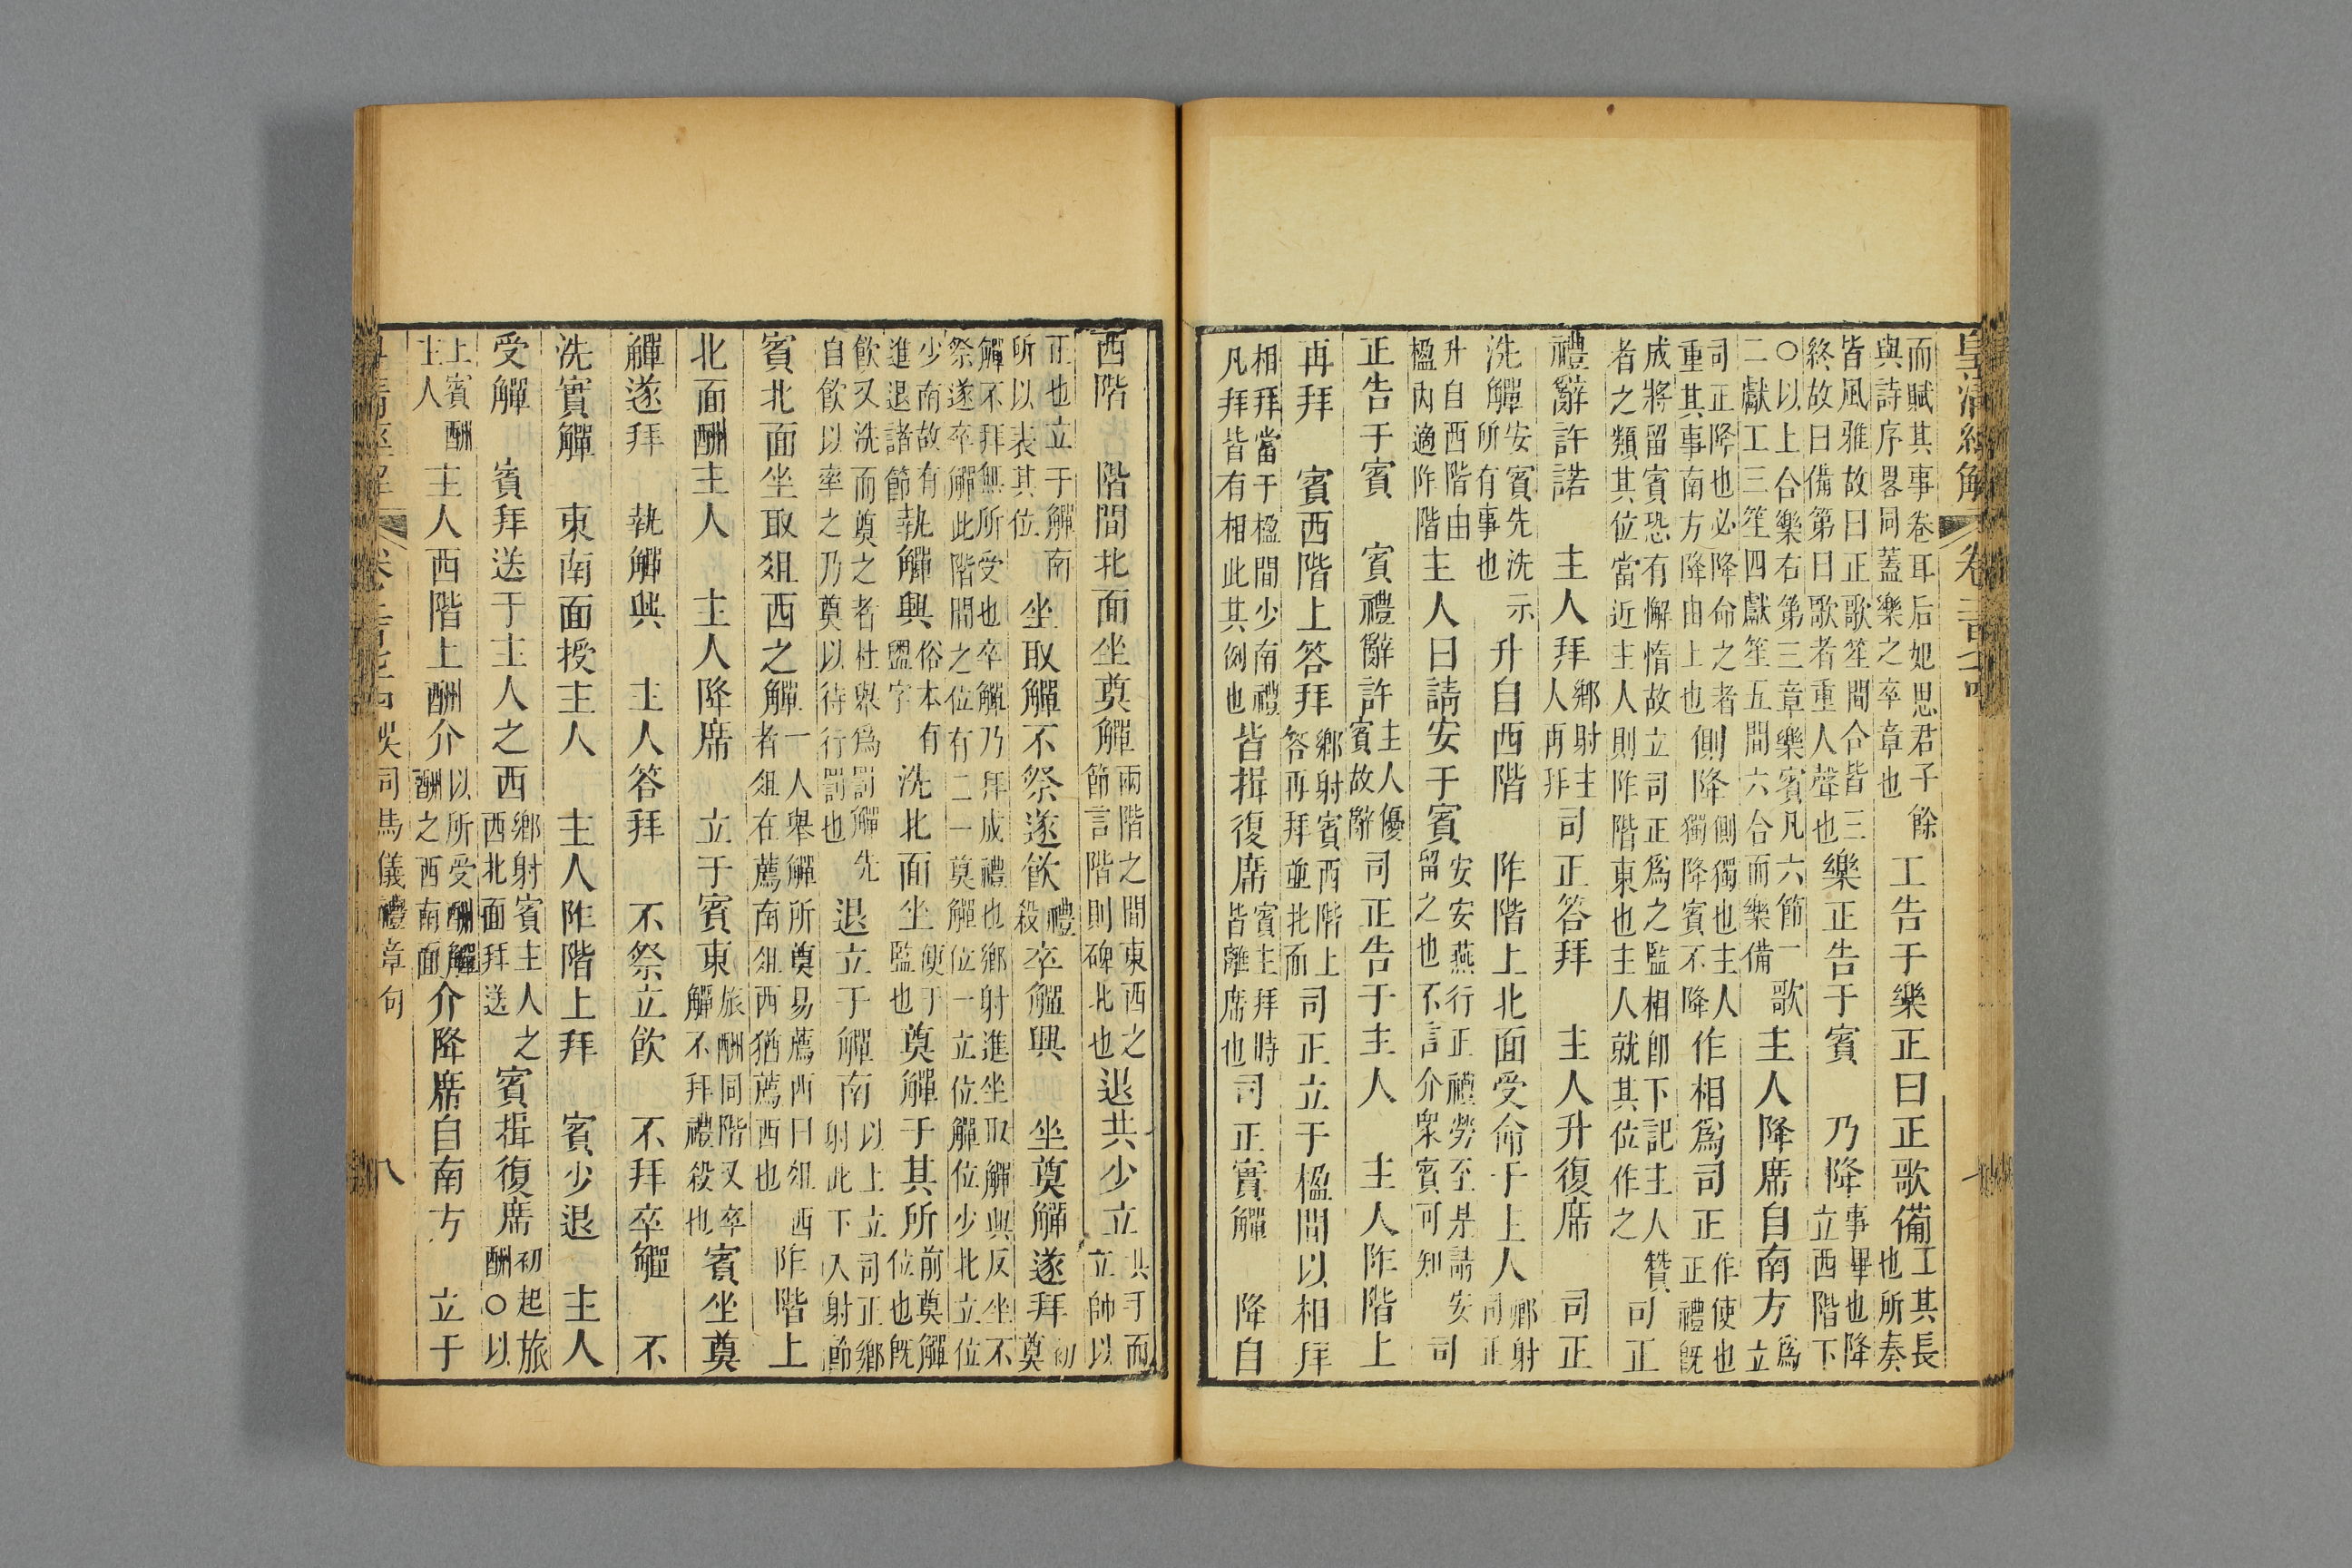 皇清經解 卷二百七十四
而賦其事卷耳后妃思君子餘
與詩序畧同蓋樂之卒章也 工告于樂正曰正歌備 工其長
也所奏
皆風雅故曰正歌笙間合皆三
終故曰備第曰歌者重人聲也 樂正告于賓 乃降 事畢也降
立西階下
○以上合樂右第三章樂賓凡六節一歌
二獻工三笙四獻笙五間六合而樂備 主人降席自南方 爲
立
司正降也必降命之者
重其事南方降由上也 側降 側獨也主人
獨降賓不降 作相爲司正 作使也
正禮既
成將留賓恐有懈惰故立司正爲之監相卽下記主人贊
者之類其位當近主人則阼階東也主人就其位作之 司正
禮辭許諾 主人拜 鄉射主
人再拜 司正答拜 主人升復席 司正
洗觶 安賓先洗示
所有事也 升自西階 阼階上北面受命于主人 鄉射
司正
升自西階由
楹內適阼階 主人曰請安于賓 安安燕行正禮勞至是請安
留之也不言介衆賓可知 司
正告于賓 賓禮辭許 主人優
賓故辭 司正告于主人 主人阼階上
再拜 賓西階上答拜 鄉射賓西階上
答再拜並北面 司正立于楹間以相拜
相拜當于楹間少南禮
凡拜皆有相此其例也 皆揖復席 賓主拜時
皆離席也 司正實觶 降自
西階 階間北面坐奠觶 兩階之間東西之
節言階則碑北也 退共少立 共手而
立帥以
正也立于觶南
所以表其位 坐取觶不祭遂飮 禮
殺 卒觶興 坐奠觶遂拜 初
奠
觶不拜無所受也卒觶乃拜成禮也鄉射進坐取觶興反坐不
祭遂卒觶此階間之位有二一奠觶位一立位觶位少北立位
少南故有
進退諸節 執觶興 俗本有
盥字 洗北面坐 便于
監也 奠觶于其所 前奠觶
位也旣
飮又洗而奠之者杜舉爲罰觶先
自飮以率之乃奠以待行罰也 退立于觶南 以上立司正鄉
射此下入射節
賓北面坐取俎西之觶 一人舉觶所奠易薦西曰俎西
者俎在薦南俎西猶薦西也 阼階上
北面酬主人 主人降席 立于賓東 旅酬同階又卒
觶不拜禮殺也 賓坐奠
觶遂拜 執觶興 主人答拜 不祭立飮 不拜卒觶 不
洗實觶 東南面授主人 主人阼階上拜 賓少退 主人
受觶 賓拜送于主人之西 鄉射賓主人之
西北面拜送 賓揖復席 初起旅
酬○以
上賓酬
主人 主人西階上酬介 以所受酬觶
酬之西南面 介降席自南方 立于
皇清經解 卷二百七十四 吳司馬儀禮章句 八